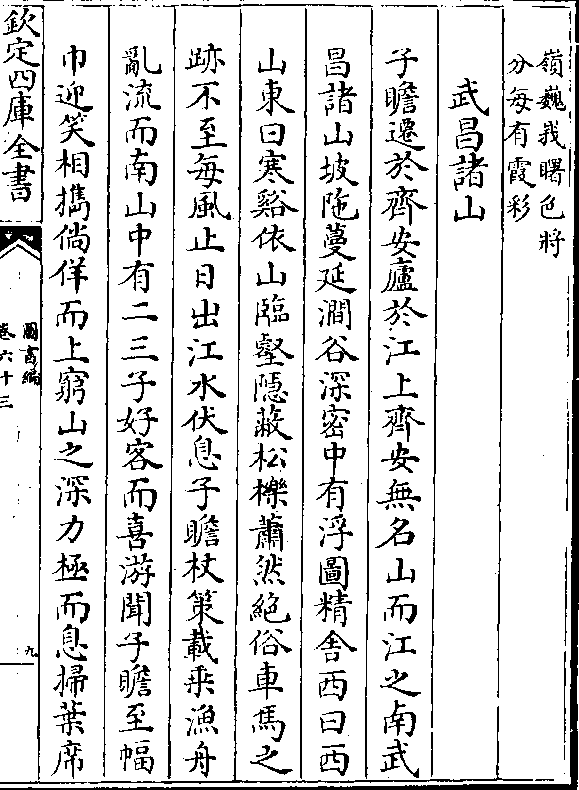 嶺巍我曙色將
分每有霞彩
武昌諸山
子瞻遷於齊安廬於江上齊安無名山而江之南武
昌諸山坡陁蔓延澗谷深密中有浮圖精舍西曰西
山東曰寒谿依山臨壑隱蔽松櫟蕭然絕俗車馬之
跡不至每風止日出江水伏息子瞻杖策載乗漁舟
亂流而南山中有二三子好客而喜游聞子瞻至幅
巾迎笑相擕倘佯而上窮山之深力極而息掃葉席
欽定四庫全書
圖書編
卷六十三
九